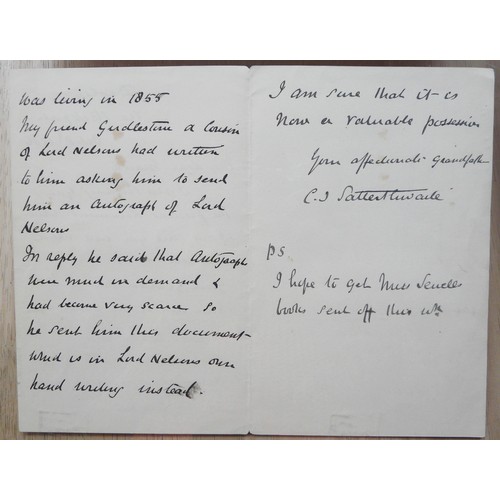 was living in 1855
My friend Girdlestone a Cousin
of Lord Nelsons had written
to him asking him to send
him an Autograph of Lord
Nelsons
In reply he said that Autograph
were much in demand &
had become very scarce so
he sent him this document
which is in Lord Nelsons own
hand writing instead.
I am sure that it is
now a valuable possession
Your affectionate Grandfather
C. J Satterthwaite
PS
I hope to get Miss
books sent off this wk